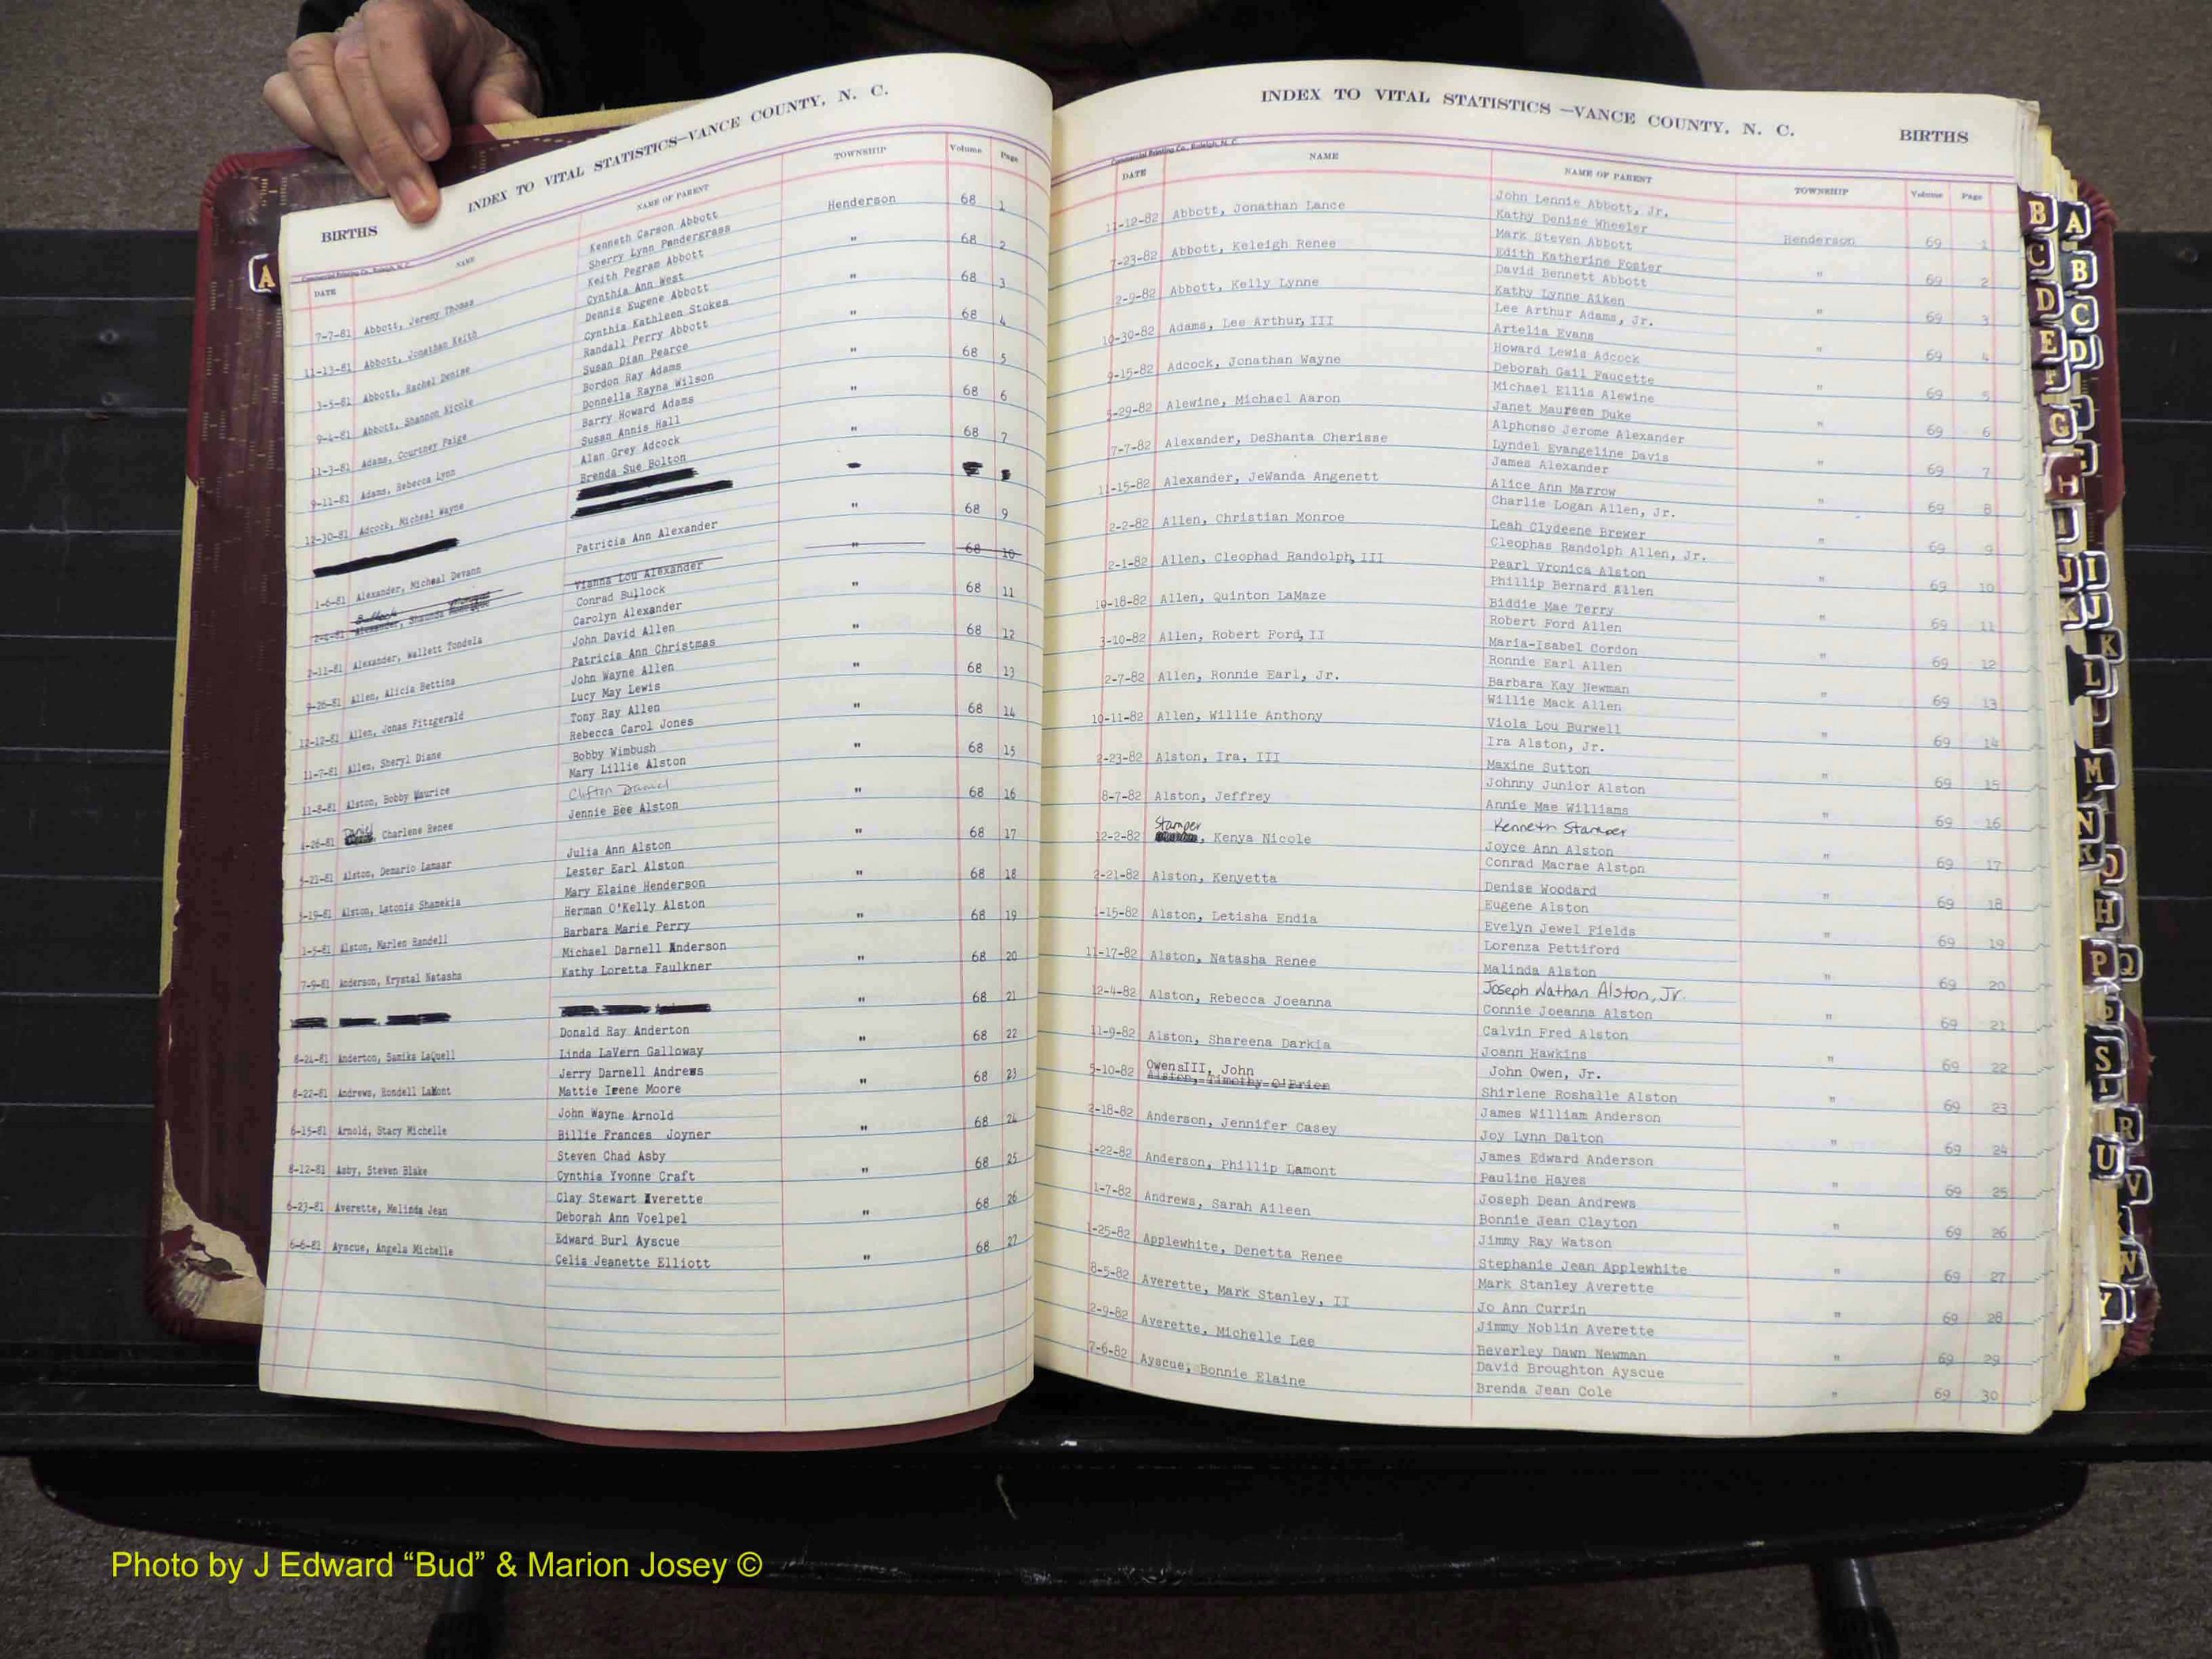 INDEX TO VITAL STATISTICS—VANCE COUNTY, N. C.
BIRTHS
Commercial Printing Co., Raleigh, N. C.
DATE NAME NAME OF PARENT TOWNSHIP Volume Page
7-7-81 Abbott, Jeremy Thomas Kenneth Carson Abbott Henderson 68 1
Sherry Lynn Pendergrass
11-13-81 Abbott, Jonathan Keith Keith Pegram Abbott " 68 2
Cynthia Ann West
3-5-81 Abbott, Rachel Denise Dennis Eugene Abbott " 68 3
Cynthia Kathleen Stokes
9-4-81 Abbott, Shannon Nicole Randall Perry Abbott " 68 4
Susan Dian Pearce
11-3-81 Adams, Courtney Paige Bordon Ray Adams " 68 5
Donnella Rayna Wilson
9-11-81 Adams, Rebecca Lynn Barry Howard Adams " 68 6
Susan Annis Hall
12-30-81 Adcock, Micheal Wayne Alan Grey Adcock " 68 7
Brenda Sue Bolton
1-6-81 Alexander, Micheal Devann Patricia Ann Alexander " 68 9
Bullock
2-4-81 Alexander, Shaunda Vianna Lou Alexander " 68 10
2-11-81 Alexander, Wallett Tondela Conrad Bullock " 68 11
Carolyn Alexander
9-26-81 Allen, Alicia Bettina John David Allen " 68 12
Patricia Ann Christmas
12-12-81 Allen, Jonas Fitzgerald John Wayne Allen " 68 13
Lucy May Lewis
11-7-81 Allen, Sheryl Diane Tony Ray Allen " 68 14
Rebecca Carol Jones
11-8-81 Alston, Bobby Maurice Bobby Wimbush " 68 15
Mary Lillie Alston
-26-81 Daniel, Charlene Renee Clifton Daniel " 68 16
Jennie Bee Alston
5-21-81 Alston, Demario Lamaar Julia Ann Alston " 68 17
-19-81 Alston, Latonia Shamekia Lester Earl Alston " 68 18
Mary Elaine Henderson
1-5-81 Alston, Marlen Randell Herman O'Kelly Alston " 68 19
Barbara Marie Perry
7-9-81 Anderson, Krystal Natasha Michael Darnell Anderson " 68 20
Kathy Loretta Faulkner
" 68 21
8-24-81 Anderton, Samika LaQuell Donald Ray Anderton " 68 22
Linda LaVern Galloway
8-22-81 Andrews, Rondell LaMont Jerry Darnell Andrews " 68 23
Mattie Irene Moore
6-15-81 Arnold, Stacy Michelle John Wayne Arnold " 68 24
Billie Frances Joyner
8-12-81 Asby, Steven Blake Steven Chad Asby " 68 25
Cynthia Yvonne Craft
6-23-81 Averette, Melinda Jean Clay Stewart Averette " 68 26
Deborah Ann Voelpel
6-6-81 Ayscue, Angela Michelle Edward Burl Ayscue " 68 27
Celia Jeanette Elliott
INDEX TO VITAL STATISTICS —VANCE COUNTY, N. C. BIRTHS
Commercial Printing Co., Raleigh, N. C.
DATE NAME NAME OF PARENT TOWNSHIP Volume Page
11-12-82 Abbott, Jonathan Lance John Lennie Abbott, Jr. Henderson 69 1
Kathy Denise Wheeler
7-23-82 Abbott, Keleigh Renee Mark Steven Abbott " 69 2
Edith Katherine Foster
2-9-82 Abbott, Kelly Lynne David Bennett Abbott " 69 3
Kathy Lynne Aiken
10-30-82 Adams, Lee Arthur, III Lee Arthur Adams, Jr. " 69 4
Artelia Evans
9-15-82 Adcock, Jonathan Wayne Howard Lewis Adcock " 69 5
Deborah Gail Faucette
5-29-82 Alewine, Michael Aaron Michael Ellis Alewine " 69 6
Janet Maureen Duke
7-7-82 Alexander, DeShanta Cherisse Alphonso Jerome Alexander " 69 7
Lyndel Evangeline Davis
11-15-82 Alexander, JeWanda Angenett James Alexander " 69 8
Alice Ann Marrow
2-2-82 Allen, Christian Monroe Charlie Logan Allen, Jr. " 69 9
Leah Clydeene Brewer
2-1-82 Allen, Cleophad Randolph, III Cleophas Randolph Allen, Jr. " 69 10
Pearl Vronica Alston
10-18-82 Allen, Quinton LaMaze Phillip Bernard Allen " 69 11
Biddie Mae Terry
3-10-82 Allen, Robert Ford, II Robert Ford Allen " 69 12
Maria-Isabel Cordon
2-7-82 Allen, Ronnie Earl, Jr. Ronnie Earl Allen " 69 13
Barbara Kay Newman
10-11-82 Allen, Willie Anthony Willie Mack Allen " 69 14
Viola Lou Burwell
2-23-82 Alston, Ira, III Ira Alston, Jr. " 69 15
Maxine Sutton
8-7-82 Alston, Jeffrey Johnny Junior Alston " 69 16
Annie Mae Williams
12-2-82 Stamper, Kenya Nicole Kenneth Stamper " 69 17
Joyce Ann Alston
2-21-82 Alston, Kenyetta Conrad Macrae Alston " 69 18
Denise Woodard
1-15-82 Alston, Letisha Endia Eugene Alston " 69 19
Evelyn Jewel Fields
11-17-82 Alston, Natasha Renee Lorenza Pettiford " 69 20
Malinda Alston
12-4-82 Alston, Rebecca Joeanna Joseph Nathan Alston, Jr. " 69 21
Connie Joeanna Alston
11-9-82 Alston, Shareena Darkia Calvin Fred Alston " 69 22
Joann Hawkins
5-10-82 OwensIII, John John Owen, Jr. " 69 23
Alston, Timothy O'Brien Shirlene Roshalle Alston
2-18-82 Anderson, Jennifer Casey James William Anderson " 69 24
Joy Lynn Dalton
1-22-82 Anderson, Phillip Lamont James Edward Anderson " 69 25
Pauline Hayes
1-7-82 Andrews, Sarah Aileen Joseph Dean Andrews " 69 26
Bonnie Jean Clayton
1-25-82 Applewhite, Denetta Renee Jimmy Ray Watson " 69 27
Stephanie Jean Applewhite
8-5-82 Averette, Mark Stanley, II Mark Stanley Averette " 69 28
Jo Ann Currin
2-9-82 Averette, Michelle Lee Jimmy Noblin Averette " 69 29
Beverley Dawn Newman
7-6-82 Ayscue, Bonnie Elaine David Broughton Ayscue " 69 30
Brenda Jean Cole
A
B A
C B
D C
E D
G
H
I
J I
J
K
L
M
N
O
H
P Q
S
R
U
V
W
Y
Photo by J Edward “Bud” & Marion Josey ©